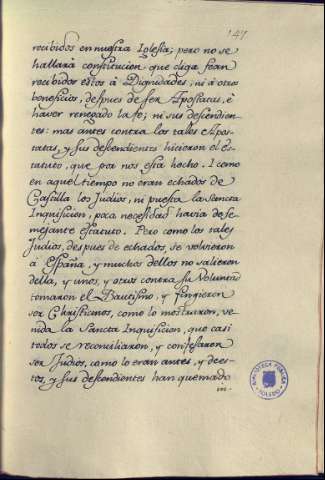 147
recibidos en nuestra Iglesia; pero no se
hallará constitucion, que diga sean
recibidos estos à Dignidades, ni à otros
beneficios, despues de ser Apostatas, è
haver renegado la fe; ni sus descendien-
tes: mas antes contra los tales Apos-
tatas, y sus descendientes hicieron el es-
tatuto, que por nos está hecho. I como
en aquel tiempo no eran echados de
Castilla los Judios, ni puesta la Sancta
Inquisicion, poca necesidad havia de se-
mejante estatuto. Pero como los tales
Judios, despues de echados, se volvieron
à España, y muchos dellos no salieron
della, y unos, y otros contra su Voluntad
tomaron el Bautismo, y fingieron
ser Christianos, como lo mostraron, ve-
nida la Sancta Inquisicion, que casi
todos se reconciliaron, y confesaron
ser Judios, como lo eran antes, y de es-
tos, y sus descendientes han quemado
in-
BIBLIOTECA PUBLICA
TOLEDO